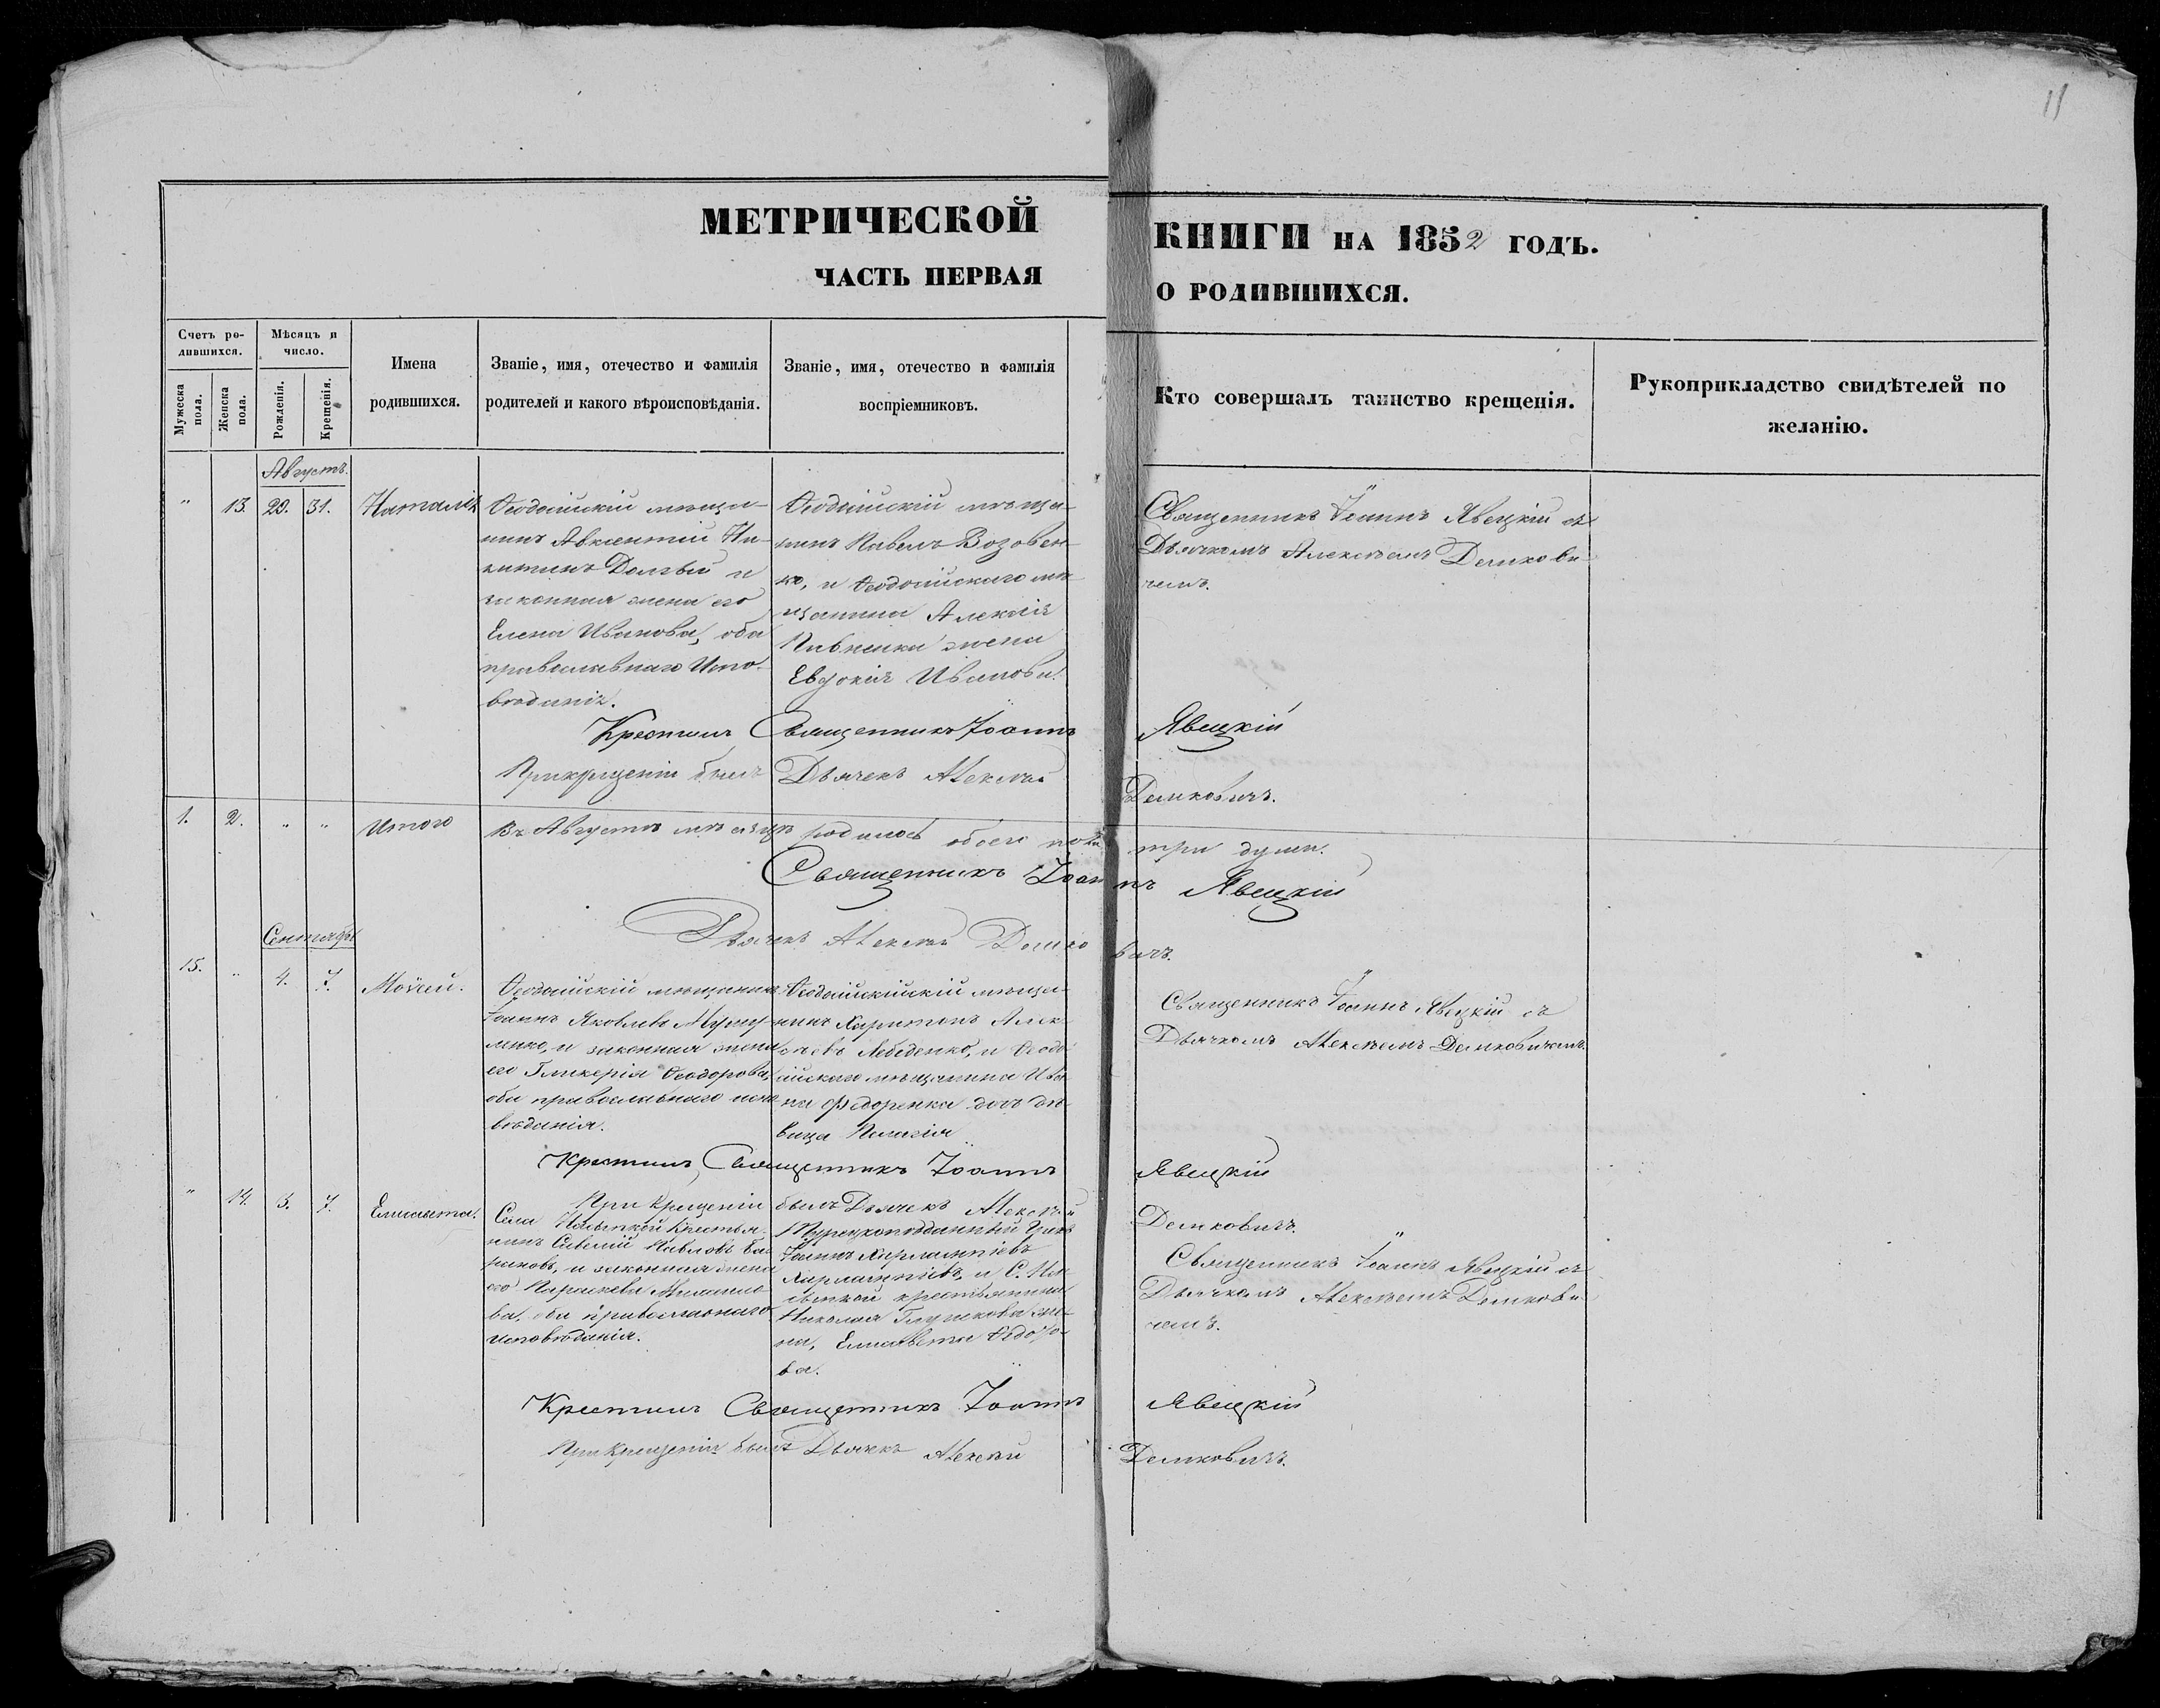 11
МЕТРИЧЕСКОЙ КНИГИ НА 1852 ГОДЪ.
ЧАСТЬ ПЕРВАЯ О РОДИВШИХСЯ.
Счетъ ро-
дившихся.
Мужеска
пола.
Женска
пола.
Мѣсяцъ и
число.
Рожденія.
Крещенія.
Имена
родившихся.
Званіе, имя, отечество и фамилія
родителей и какого вѣроисповѣданія.
Званіе, имя, отечество и фамилія
воспріемниковъ.
Кто совершалъ таинство крещенія.
Рукоприкладство свидѣтелей по
желанію.
Августъ.
" 13. 29. 31. Наталія
Ѳеодосійскій мѣща-
нинъ Авксентій Ни-
китинъ Долгый и
законная жена его
Елена Иванова, оба
православнаго Испо-
вѣданія.
Ѳеодосійскій мѣща-
нинъ Павелъ Возовен-
ко, и Ѳеодосійскаго мѣ-
щанина Алексія
Павленки жена
Евдокія Иванова.
Священникъ Іоаннъ Явецкій съ
Дьячкомъ Алексѣемъ Демкови-
чемъ.
Крестилъ Священникъ Іоаннъ Явецкій
При крещеніи былъ Дьячекъ Алексѣй Демковичъ.
1. 2. " " Итого Въ Августѣ мѣсяцѣ родилось обоего пола три души.
Священникъ Іоаннъ Явецкій
Дьячекъ Алексѣй Демковичъ.
Сентябрь
15. " 4. 7. Моисей.
Ѳеодосійскій мѣщанинъ
Іоаннъ Яковлевъ
и законная жена
его Гликерія Ѳеодорова,
оба православнаго испо
вѣданія.
Ѳеодосійскійскій мѣща-
нинъ Харитонъ Алек-
сѣевъ Лебеденко, и Ѳеодо-
сійскаго мѣщанина Ива
на Федоренка дочь дѣ-
вица Пелагія
Священникъ Іоаннъ Явецкій съ
Дьячкомъ Алексѣемъ Демковичемъ.
Крестилъ Священникъ Іоаннъ Явецкій
При крещеніи былъ Дьячекъ Алексѣй Демковичъ.
" 14. 5. 7. Елисавета.
Села Насыпкой Крестья-
нинъ Савелій Павловъ
и законная жена
его Параскева Михайло
ва, оба православнаго
исповѣданія.
Турецкоподданный Грекъ
Іоаннъ Харлампіевъ
Харлампіевъ, и С. На-
сыпкой крестьянина
Николая Глушкова же-
на, Елисавета Ѳедоро-
ва.
Священникъ Іоаннъ Явецкій съ
Дьячкомъ Алексѣемъ Демкови-
чемъ.
Крестилъ Священникъ Іоаннъ Явецкій
При крещеніи былъ Дьячекъ Алексѣй Демковичъ.